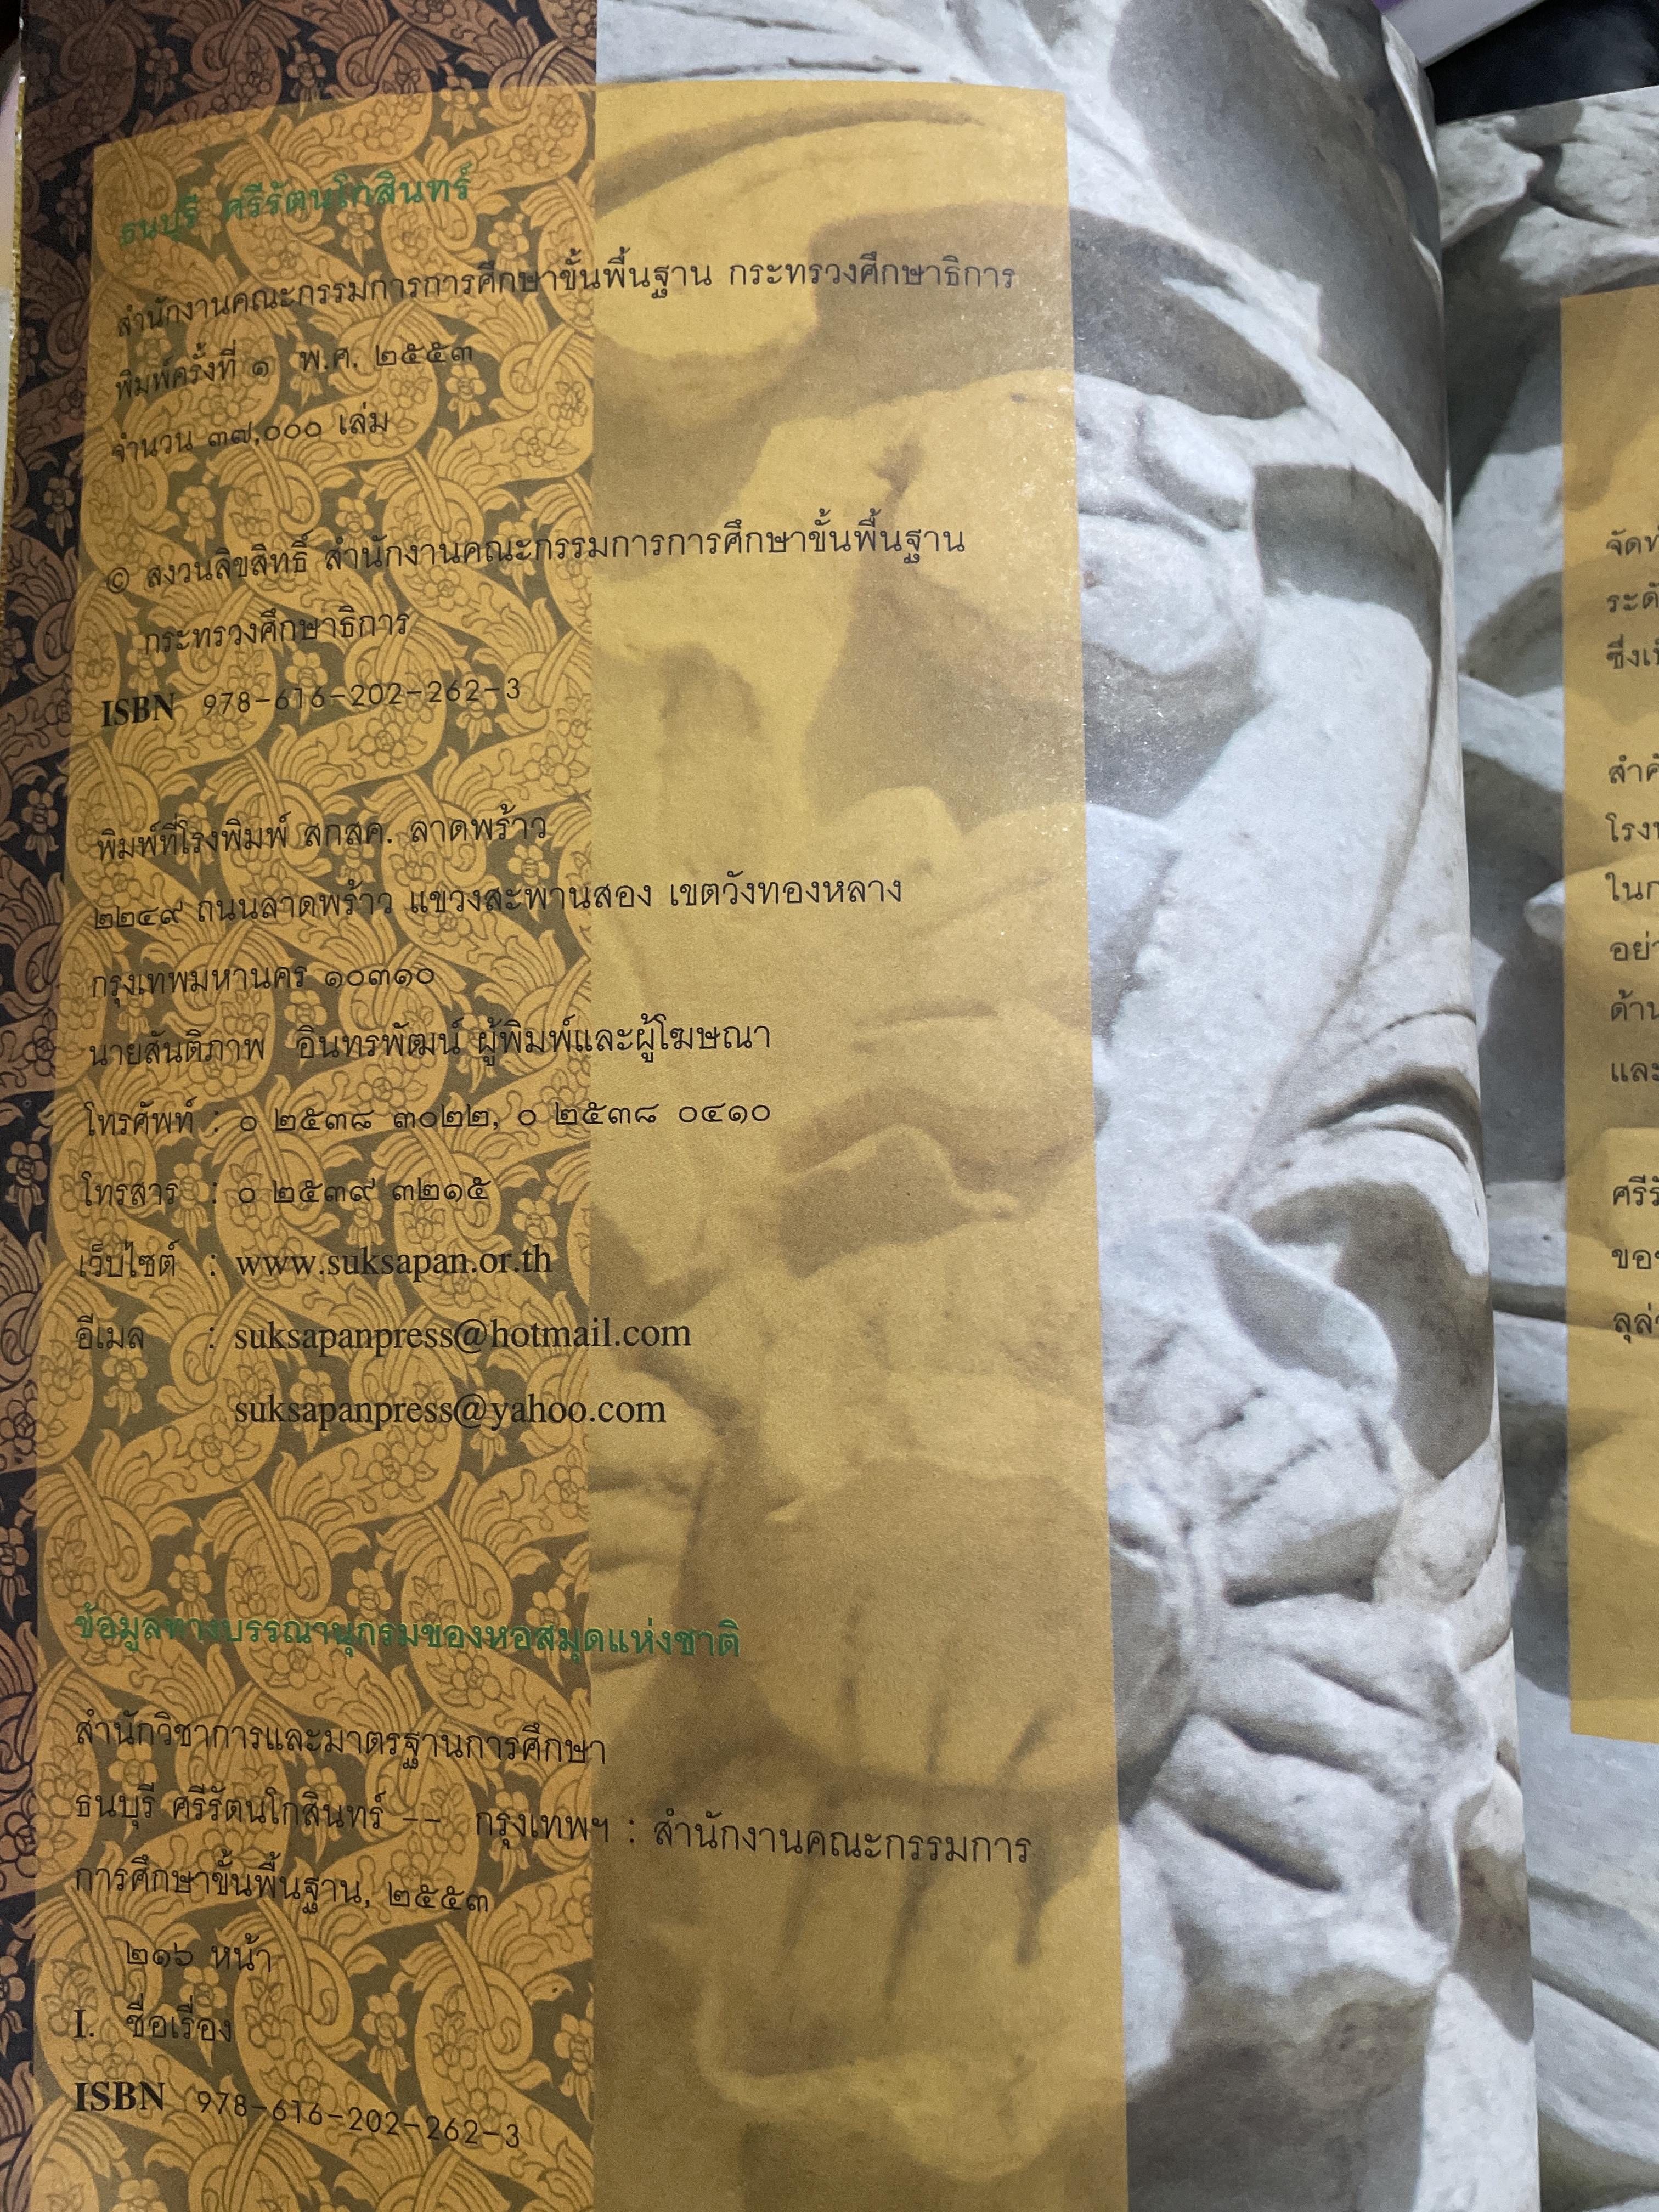 ธนบุรี ศรีรัตนโกสินทร์
สำนักงานคณะกรรมการการศึกษาขั้นพื้นฐาน กระทรวงศึกษาธิการ
พิมพ์ครั้งที่ ๑ พ.ศ. ๒๕๕๓
จำนวน ๓๗,๐๐๐ เล่ม
© สงวนลิขสิทธิ์ สำนักงานคณะกรรมการการศึกษาขั้นพื้นฐาน
กระทรวงศึกษาธิการ
ISBN 978-616-202-262-3
พิมพ์ที่โรงพิมพ์ สกสค. ลาดพร้าว
๒๒๔๙ ถนนลาดพร้าว แขวงสะพานสอง เขตวังทองหลาง
กรุงเทพมหานคร ๑๐๓๑๐
นายสันติภาพ อินทรพัฒน์ ผู้พิมพ์และผู้โฆษณา
โทรศัพท์ : ๐ ๒๕๓๘ ๓๐๒๒, ๐ ๒๕๓๘ ๐๔๑๐
โทรสาร : ๐ ๒๕๓๙ ๓๒๑๕
เว็บไซต์ : www.suksapan.or.th
อีเมล : suksapanpress@hotmail.com
suksapanpress@yahoo.com
ข้อมูลทางบรรณานุกรมของหอสมุดแห่งชาติ
สำนักวิชาการและมาตรฐานการศึกษา
ธนบุรี ศรีรัตนโกสินทร์ -- กรุงเทพฯ : สำนักงานคณะกรรมการ
การศึกษาขั้นพื้นฐาน, ๒๕๕๓
๒๑๖ หน้า
I. ชื่อเรื่อง
ISBN 978-616-202-262-3
ในก
และ
ของ